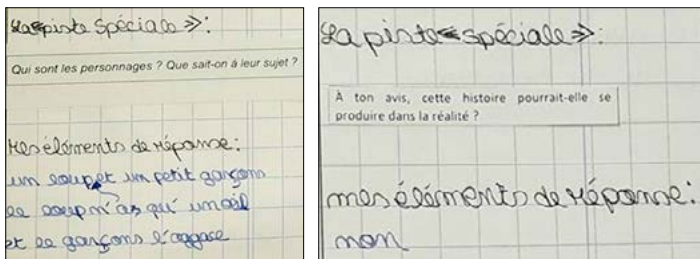 La « piste Spéciale » :
Qui sont les personnages ? Que sait-on à leur sujet ?
Mes éléments de réponse :
un loup et un petit garçons
le loup n'as qu' un œil
et le garçons l'aggase
La piste « spéciale » :
À ton avis, cette histoire pourrait-elle se
produire dans la réalité ?
mes éléments de réponse :
non